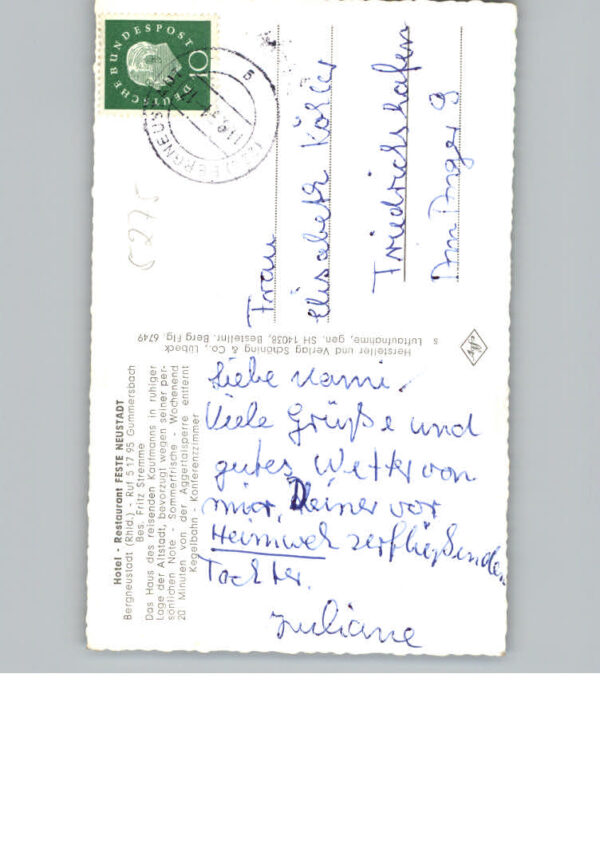 Hotel - Restaurant FESTE NEUSTADT
Bergneustadt (Rhld.) - Ruf 5 17 95 Gummersbach
Bes. Fritz Stremme
Das Haus des reisenden Kaufmanns in ruhiger
Lage der Altstadt, bevorzugt wegen seiner per-
sönlichen Note - Sommerfrische - Wochenend
20 Minuten von der Aggertalsperre entfernt
Kegelbahn - Konferenzzimmer
Liebe Mami,
Viele Grüße und
gutes Wetter von
mir, Deiner vor
Heimweh zerfließenden
Tochter.
Juliane
Hersteller und Verlag Schöning & Co., Lübeck
s Luftaufnahme, gen. SH 14038, Bestellnr. Berg Flg. 6749
DEUTSCHE BUNDESPOST
10
BERGNEUS
Frau
Elisabeth Köhler
Friedrichshafen
Am Anger 9
C275